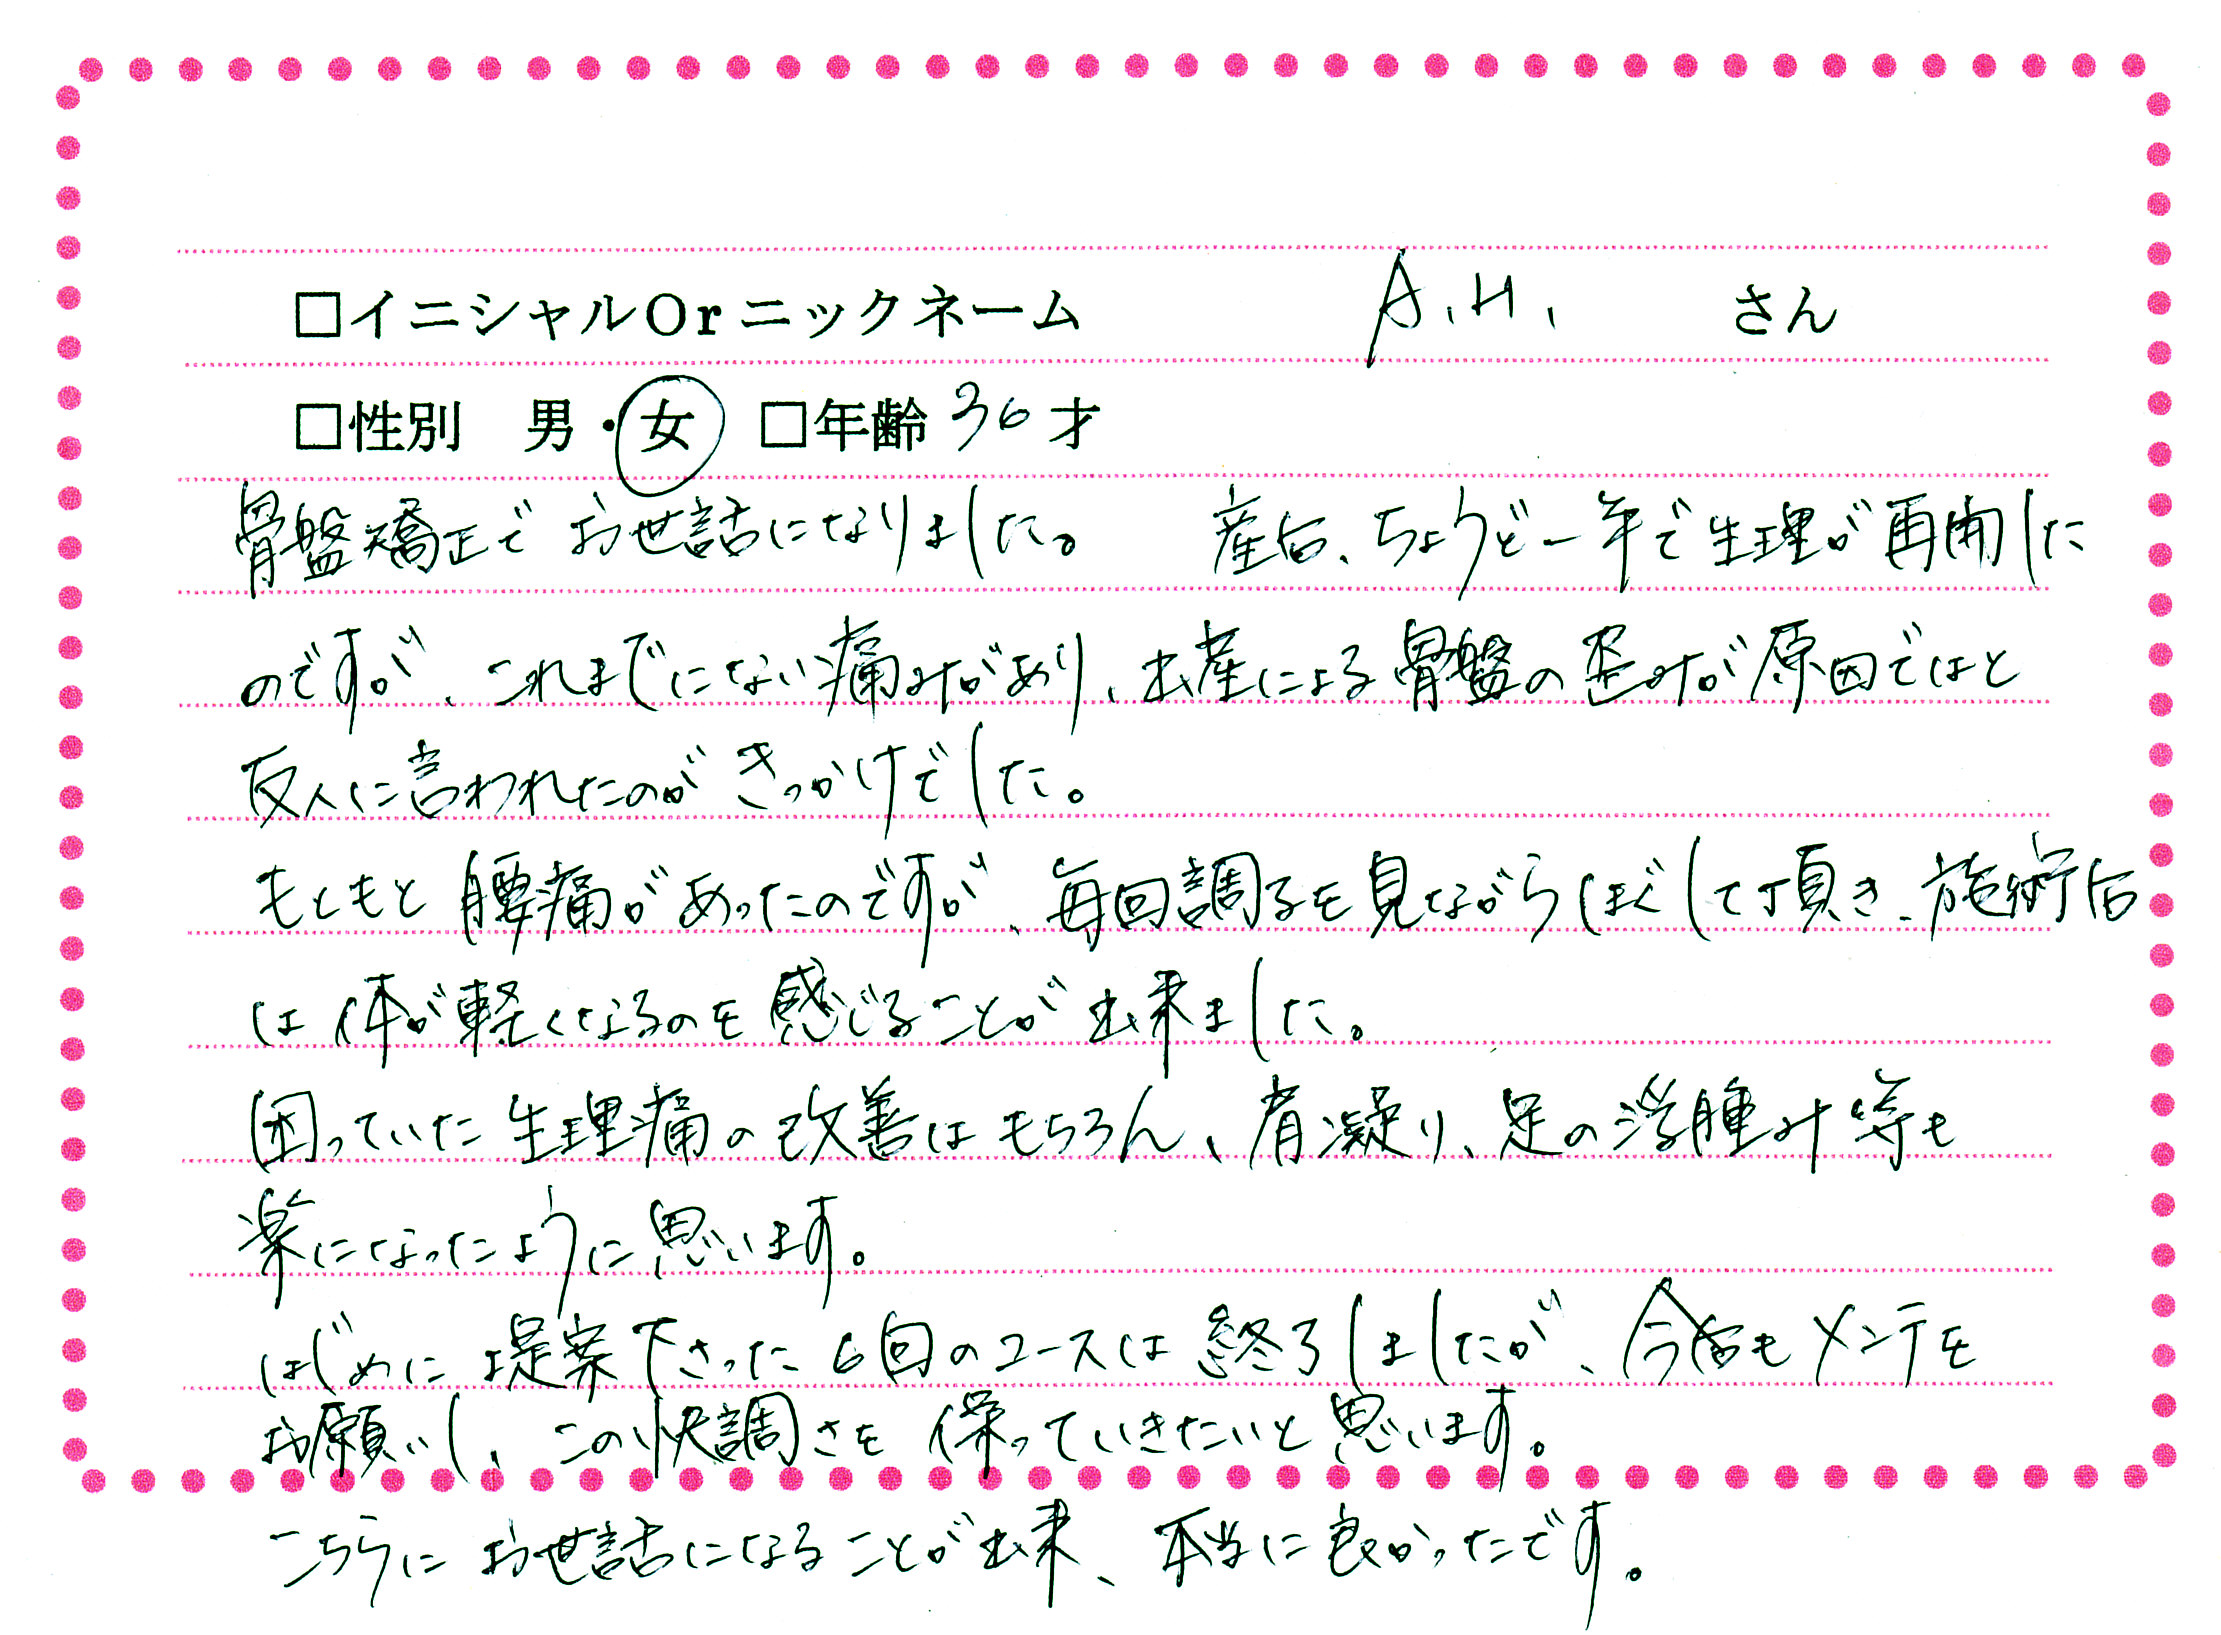 □イニシャルOrニックネーム A.H. さん
□性別 男・女 □年齢 36才
骨盤矯正でお世話になりました。 産后、ちょうど一年で生理が再開した
のですが、これまでにない痛みがあり、出産による骨盤の歪みが原因ではと
友人に言われたのがきっかけでした。
もともと腰痛があったのですが、毎回調子を見ながらほぐして頂き、施術后
は体が軽くなるのを感じることが出来ました。
困っていた生理痛の改善はもちろん、肩凝り、足の浮腫み等も
楽になったように思います。
はじめに提案下さった6回のコースは終了しましたが、今后もメンテを
お願いし、この快調さを保っていきたいと思います。
こちらにお世話になることが出来、本当に良かったです。